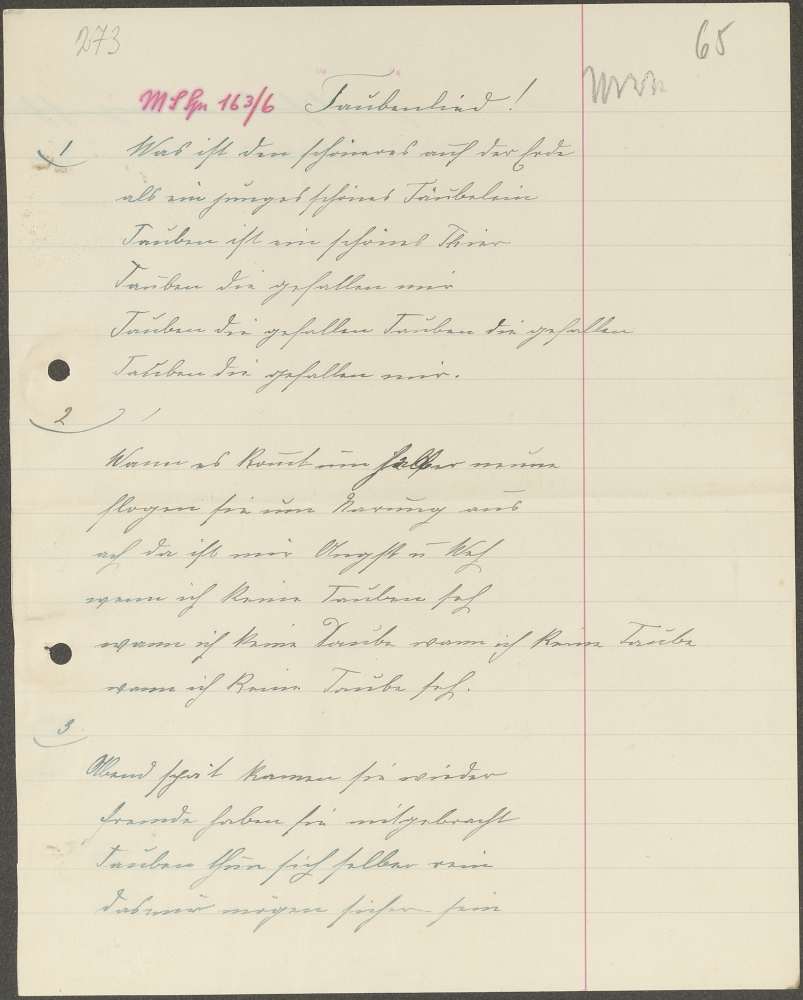 273
65
MS Spr 163/6 Taubenlied!
1
Was ist den schöneres auf der Erde
als ein junges schönes Täubelein
Tauben ist ein schönes Thier
Tauben die gefallen mir
Tauben die gefallen Tauben die gefallen
Tauben die gefallen mir.
2
Wann es komt um halber neune
flogen sie um Narung aus
ach da ist mir Angst u Weh
wenn ich keine Tauben seh
wann ich keine Taube wann ich keine Taube
wann ich keine Taube seh.
3
Abend spät kamen sie wieder
fremde haben sie mitgebracht
Tauben thun sich selber rein
das wir mögen sicher sein